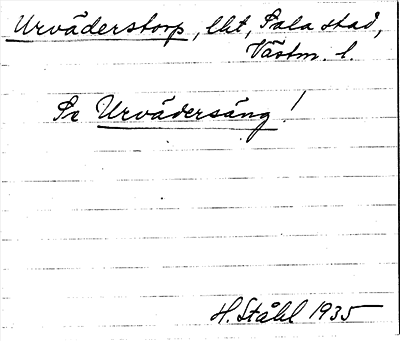 Urväderstorp, lht, Sala stad,
Västm. l.
Se Urvädersäng!
H. Ståhl 1935